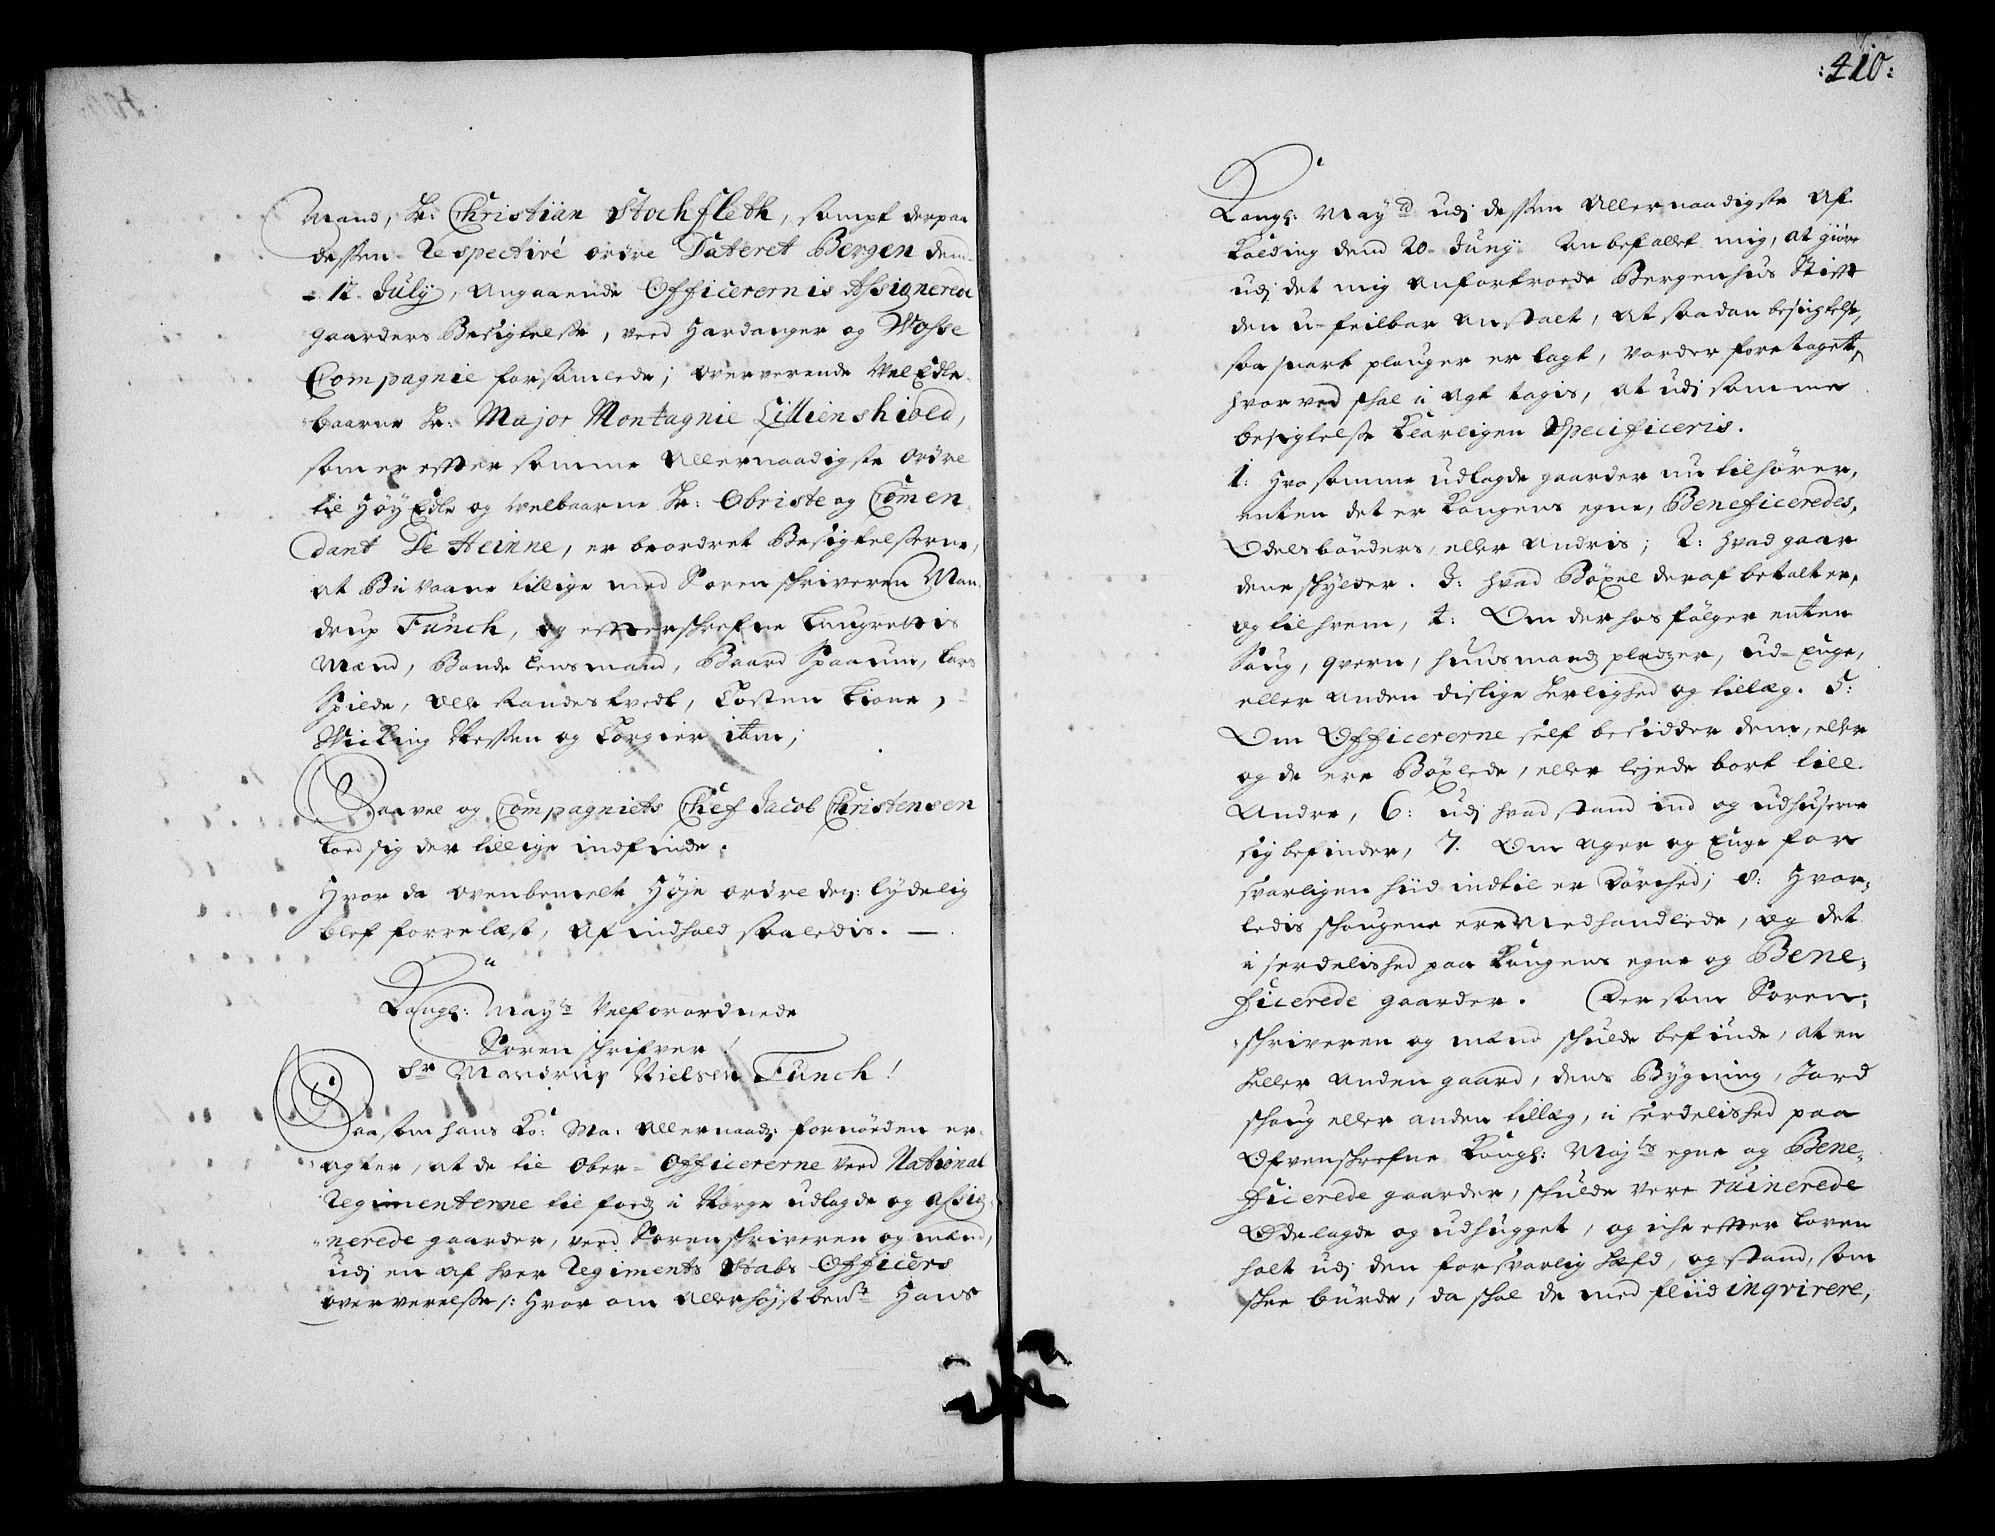 Mand, Hr: Christian Stochfleth, sampt derpaa
dessen Respectivè ordre Dateret Bergen dend
12. July, angaaende Officerernis Assignerede
gaarders Besigtelse, ved Hardanger og Vosse
Compagnie forsamlede; oververende Vel Edle
baarne Hr: Major Montagnie Lillienshiold,
som er efter samme allernaadigste ordre
til Høy Edle og Velbaarne Hr: Obriste og Comen-
dant De Heinne, er beordret Besigtelserne,
at Bivaane tillige med Sorenskriveren Man-
drup Fünch, og efterskrefne Laugrettis
Mænd, Bonde Lensmand, Baard Spaarum, Lars
Spilde, Torsten Lione,
Wicking Nessen og Torgier ibm;
Saavel og Compagniets Chef Jacob Christensen
lod sig der tillige indfinde.
Hvor da ovenbemelte Høje ordre dens lydelig
blef forrelæst, af indhold saaledis. —
Kongl: Mayts Velforordnede
Sorenskrifver!
Sr Mandrup Nielsen Fünch!
Saasom hans Ko: Ma: allernaad: fornøden er-
agter, at de til Ober-Officererne ved National
Regimenterne til fods i Norge udlagde og assig-
nerede gaarder, ved Sorenskriveren og mænd,
udi en af hver Regiments Stabs Officers
oververelse /: Hvor om allerhøystbente Hans
:410:
Kongl: Mayt udi dessen allernaadigste af
Kolding dend 20. Juny anbefallet mig, at giøre
udi det mig anfortroede Bergenhus Stift
den u-feilbar anstalt, at saadan besigtelse,
saa snart plouger er lagt, vorder foretaget,
hvorved skal i agt tagis, at udi samme
besigtelse klarligen Specificeris.
1: Hvo samme udlagde gaarder nu tilhører,
enten det er Kongens egne, Beneficeredes,
Odelsbønders, eller andris; 2: hvad gaar
dene skylder. 3: hvad Bøxel deraf betalt er,
og til hvem, 4: Om der hos følger enten
Saug, qvern, huusmands pladzer, ud-Enge,
eller anden dislige herlighed og tillæg. 5:
Om Officererne self besidder dem, eller
og de ere Bøxlede, eller leyede bort till
Andre, 6: udi hvad stand ind og udhuserne
sig befinder, 7. Om ager og Enge for
svarligen hiid indtil er dørched; 8: Hvor-
ledis skougene ere medhandlede, og det
i serdelished paa Kongens egne og Bene-
ficerede gaarder. Dersom Soren-
skriveren og mænd skulde befinde, at en
heller anden gaard, dens Bygning, Jord
skoug eller anden tillæg, i serdelished paa
Ofvenskrefne Kongl: Mayts egne og Bene-
ficerede gaarder, skulde vere ruinerede
Ødelagde og udhugget, og iche efter loven
holt udi den forsvarlig hæfd, og stand, som
skee burde, da skal de med fliid inqvirere,